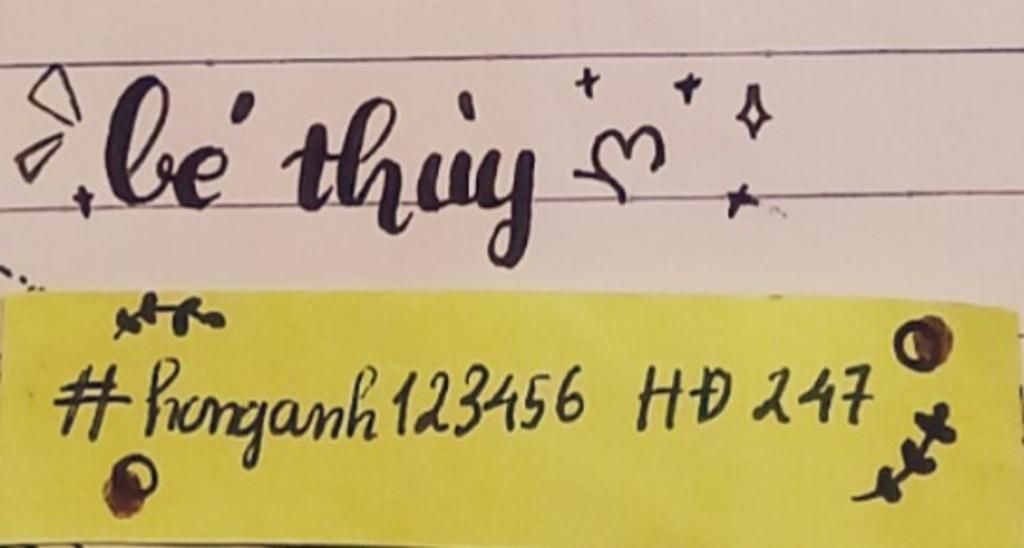 bé thùy
#honganh123456 HĐ 247